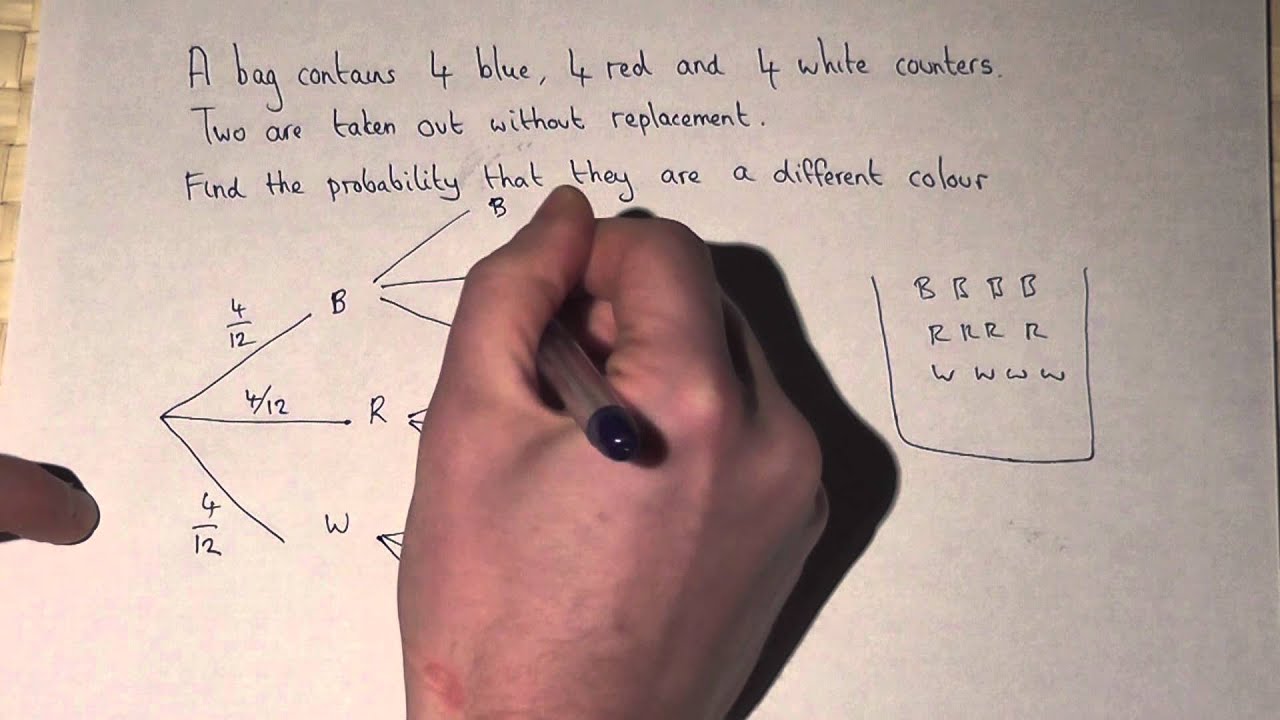 A bag contains 4 blue, 4 red and 4 white counters.
Two are taken out without replacement.
Find the probability that they are a different colour
B
4/12 B
4/12 R
4/12 W
B B B B
R R R R
W W W W